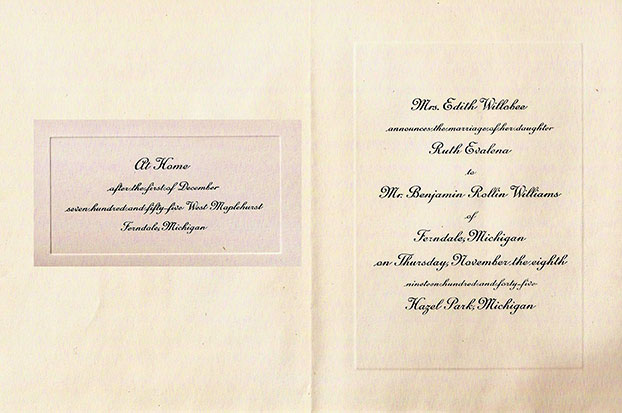 At Home
after the first of December
seven hundred and fifty-five West Maplehurst
Ferndale, Michigan
Mrs. Edith Willobee
announces the marriage of her daughter
Ruth Evalena
to
Mr. Benjamin Rollin Williams
of
Ferndale, Michigan
on Thursday, November the eighth
nineteen hundred and forty-five
Hazel Park, Michigan